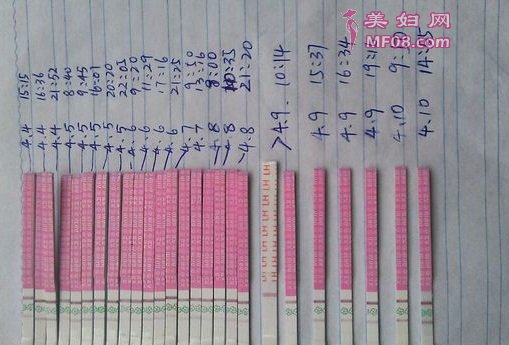 美妇网
MF08.com
4.4 15:15
4.4 16:36
4.4 21:52
4.5 8:40
4.5 9:45
4.5 16:01
4.5 20:20
4.5 22:05
4.6 9:20
4.6 11:29
4.6 17:16
4.6 21:25
4.7 9:50
4.7
4.8 8:00
4.8 10:35
4.8 21:20
4.9. 10:14
4.9 15:37
4.9 16:34
4.9
4.10
4.10
LH LH LH LH LH LH